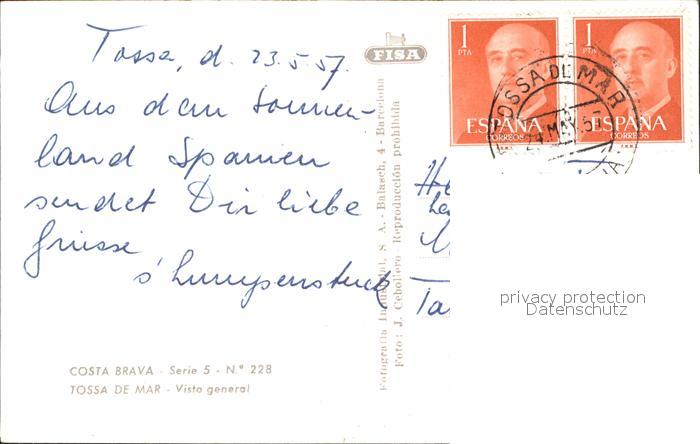 Tossa, d. 23.5.57.
Aus dem Sonnen-
land Spanien
sendet Dir liebe
Grüsse
s'Lumpenstuck
COSTA BRAVA - Serie 5 - N.º 228
TOSSA DE MAR - Vista general
FISA
Fotografía Industrial, S. A. - Balasch, 4 - Barcelona
Foto: J. Cebollero Reproducción prohibida
1
PTA
ESPAÑA
CORREOS
1
PTA
ESPAÑA
CORREOS
TOSSA DE MAR
24 MAY. 57
privacy protection
Datenschutz